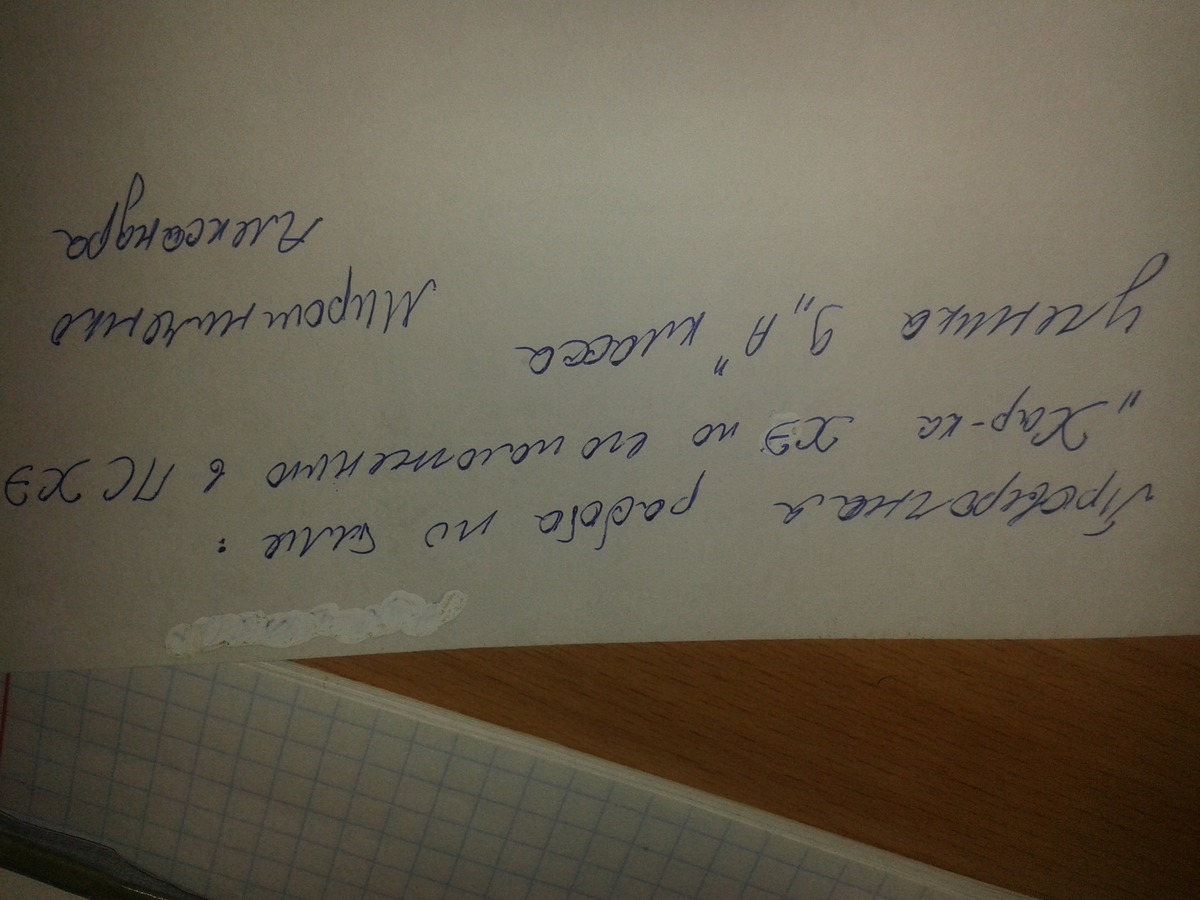 Проверочная работа по теме:
„Хар-ка ХЭ по его положению в ПСХЭ
ученика 9 „А" класса
Мирошниченко
Александра